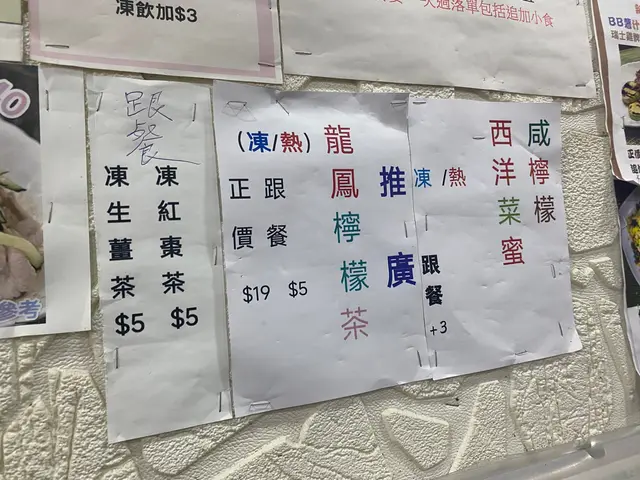 凍飲加$3
落單包括追加小食
BB醬汁
瑞士雞髀
跟餐
凍紅棗茶 $5
凍生薑茶 $5
推廣
龍鳳檸檬茶
(凍/熱)
跟餐 $5
正價 $19
咸檸檬
西洋菜蜜
凍/熱
跟餐+3
參考